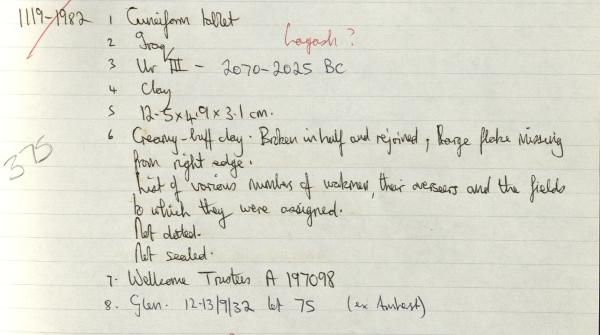 1119-1982 1 Cuneiform tablet
2 Iraq Lagash?
3 Ur III - 2070-2025 BC
4 Clay
5 12.5 x 4.9 x 3.1 cm.
6 Creamy-buff clay. Broken in half and rejoined, large flake missing
from right edge.
375
List of various number of workmen, their overseers and the fields
to which they were assigned.
Not dated.
Not sealed.
7. Wellcome Trustees A 197098
8. Glen. 12-13/9/32 lot 75 (ex Amherst)